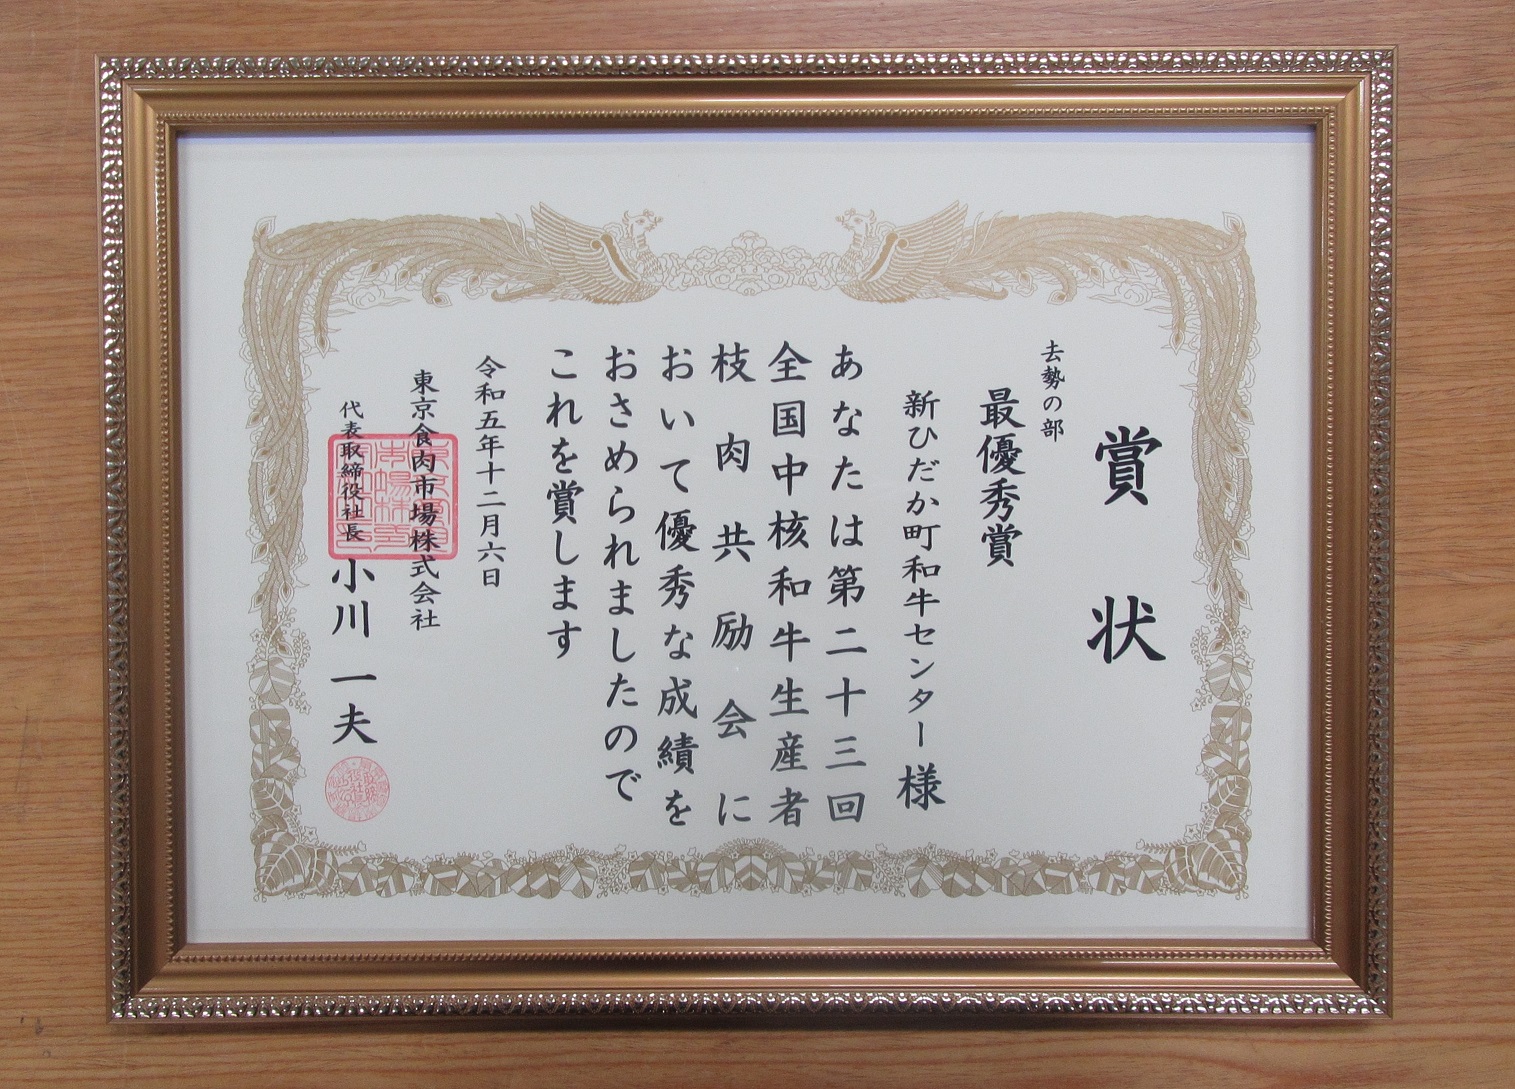 賞状
去勢の部
最優秀賞
新ひだか町和牛センター様
あなたは第二十三回
全国中核和牛生産者
枝肉共励会に
おいて優秀な成績を
おさめられましたので
これを賞します
令和五年十二月六日
東京食肉市場株式会社
代表取締役社長 小川一夫